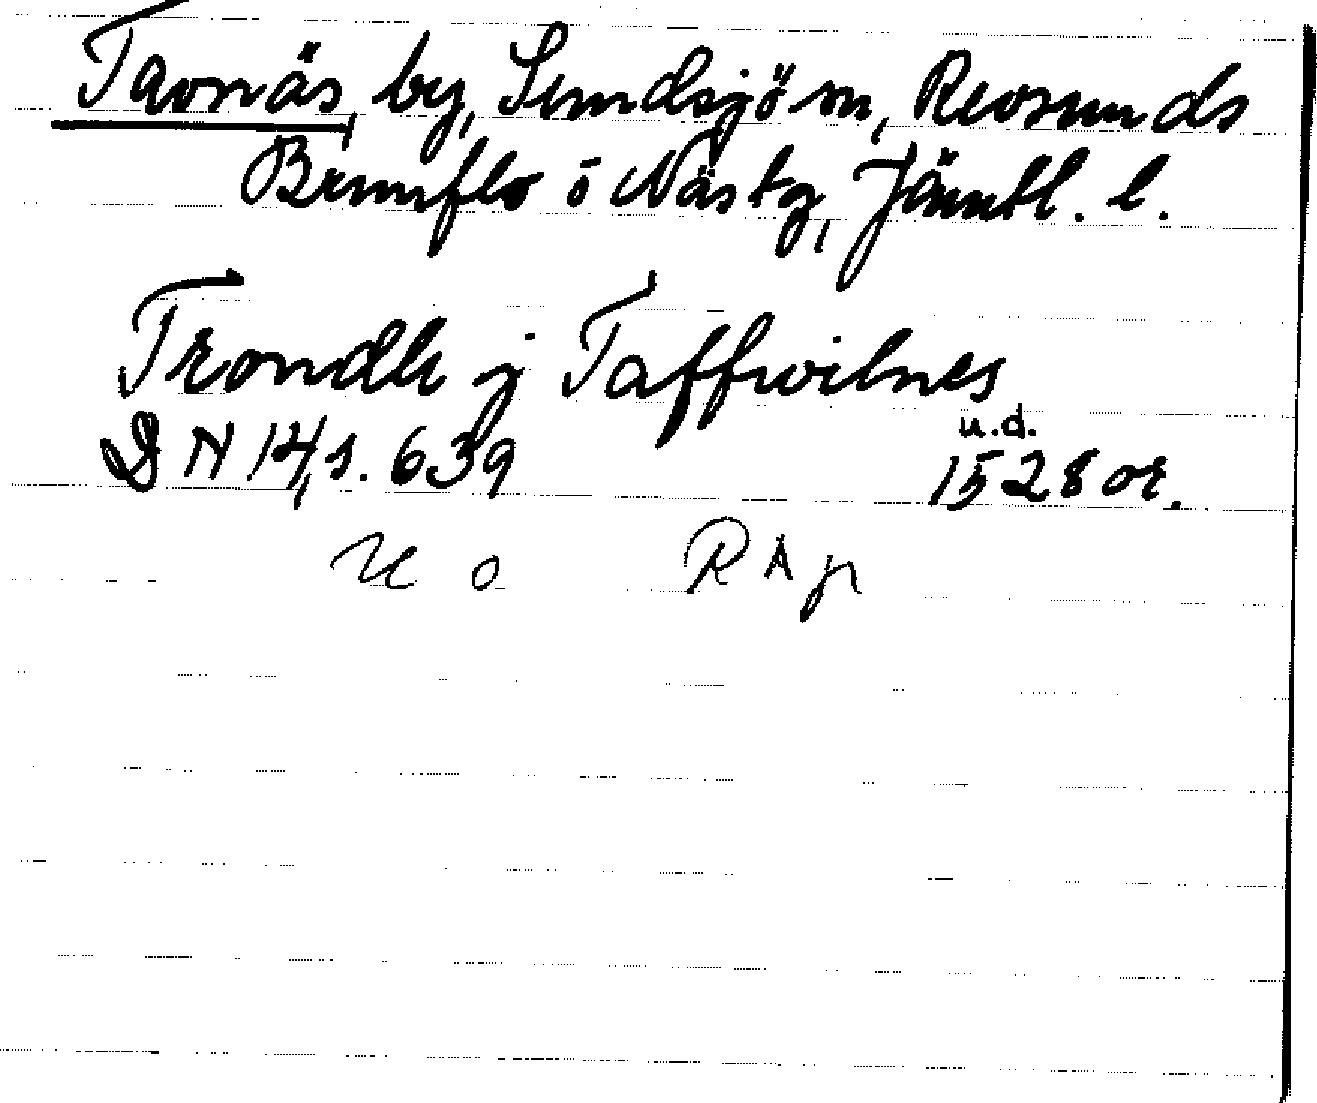 Tavnäs, by, Sundsjö sn, Revsunds
Brunflo o Näs tg, Jämtl. l.
Trondh j Taffwilnes
DN 14, s. 639 u.d. 1528 or.
RAp